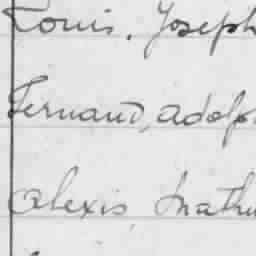 Louis, Joseph
Fernand, Adolp
Alexis, Mathu